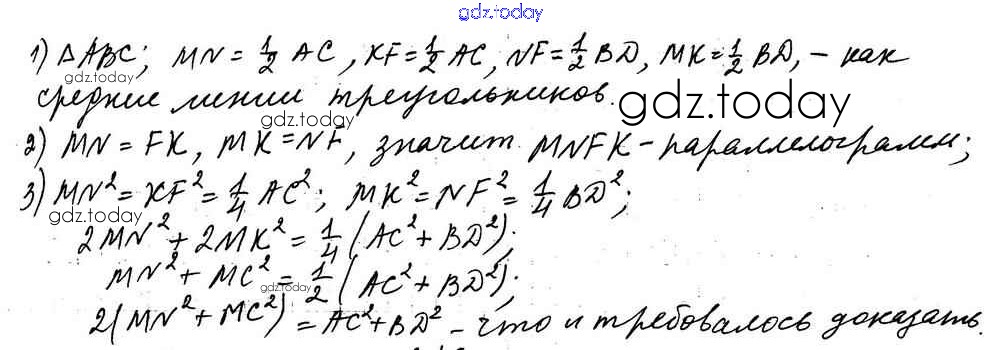 gdz.today
1) △ABC; MN = 1/2 AC, KF = 1/2 AC, NF = 1/2 BD, MK = 1/2 BD, – как
gdz.today
средние линии треугольников.
gdz.today
gdz.today
2) MN = FK, MK = NF, значит MNFK – параллелограмм;
3) MN² = KF² = 1/4 AC²; MK² = NF² = 1/4 BD²;
gdz.today
2MN² + 2MK² = 1/4 (AC² + BD²);
MN² + MC² = 1/2 (AC² + BD²);
gdz.today
2(MN² + MC²) = AC² + BD² – что и требовалось доказать.